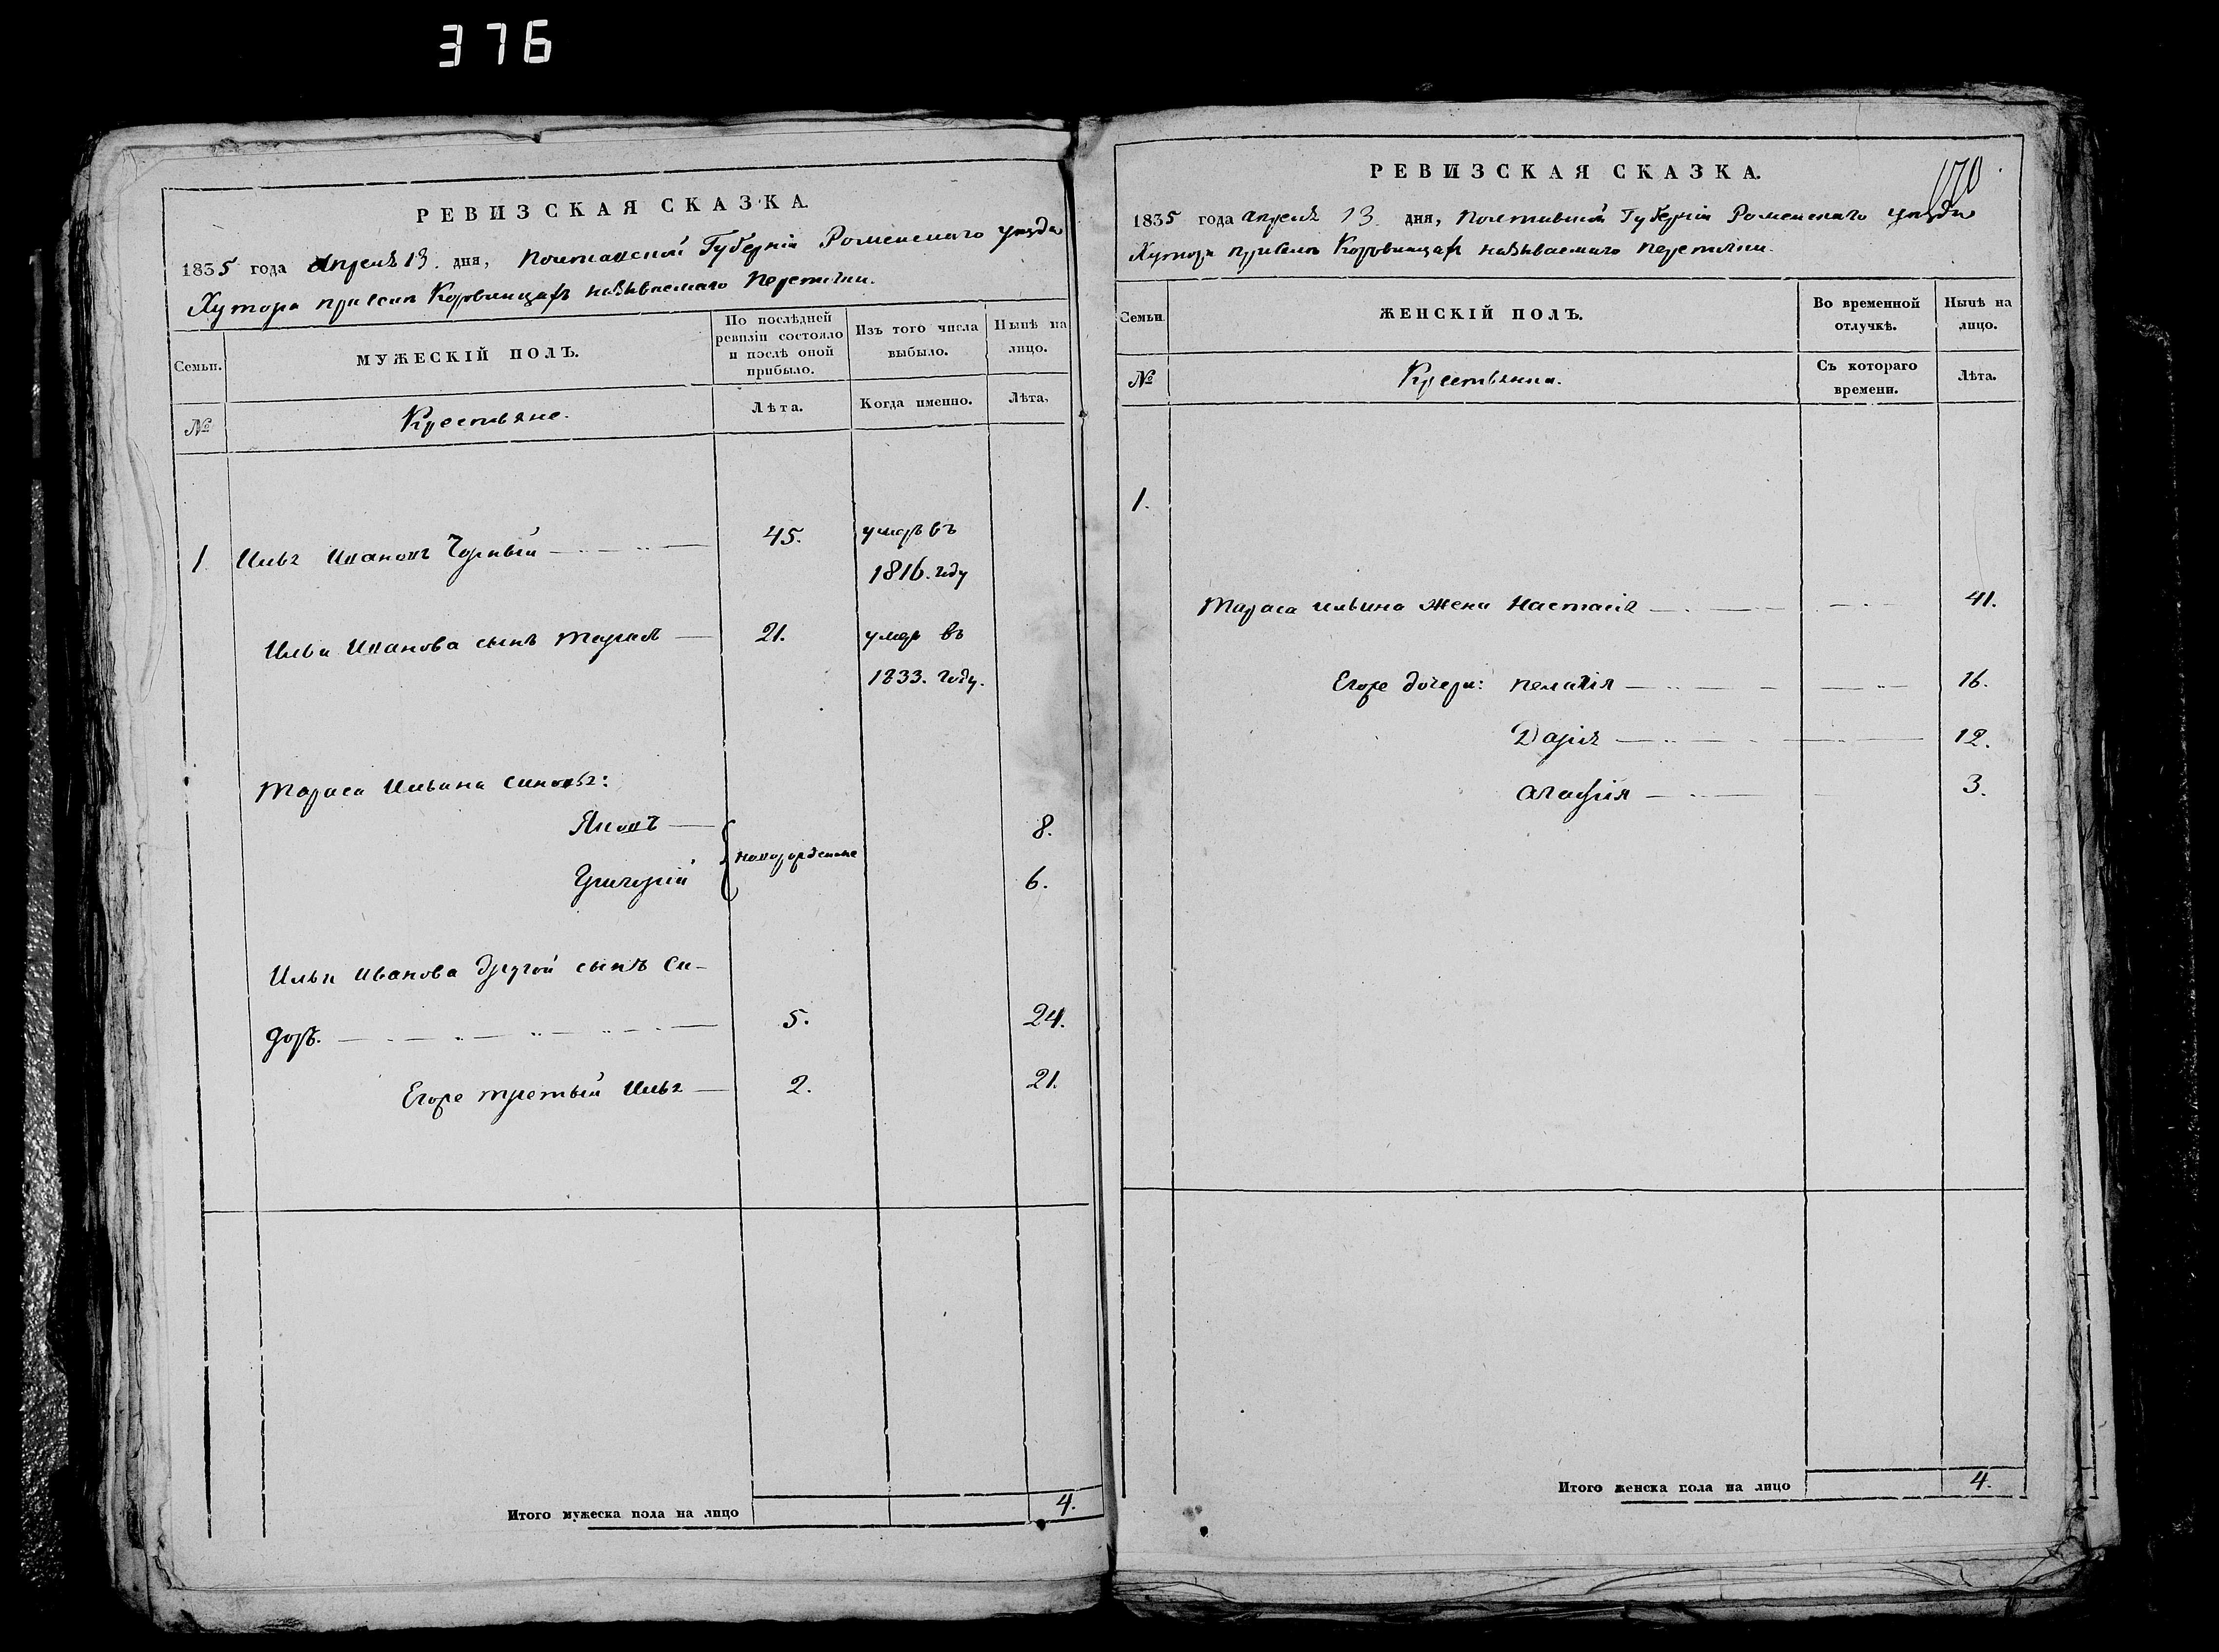 376
РЕВИЗСКАЯ СКАЗКА.
1835 года Апреля 13. дня, Полтавской Губерніи Роменскаго уезда
Хутора при селе Коровинцахъ называемаго
Семьи.
МУЖЕСКІЙ ПОЛЪ.
По послѣдней ревизіи состояло и послѣ оной прибыло.
Изъ того числа выбыло.
Нынѣ на лицо.
№
Крестьяне.
Лѣта.
Когда именно.
Лѣта,
1 Илья Ивановъ Чорный 45. умеръ въ
1816. году
Ильи Иванова сынъ Тарасъ 21. умеръ въ
1833. году.
Тараса Ильина синовья:
Яковъ 8.
новорожденные
Григорій 6.
Ильи Иванова другой сынъ Си-
доръ. 5. 24.
Егоже третьый Илья 2. 21.
Итого мужеска пола на лицо 4.
170
РЕВИЗСКАЯ СКАЗКА.
1835 года апреля 13 дня, Полтавской Губерніи Роменскаго уезда
Хутора при селе Коровинцах называемаго
Семьи.
ЖЕНСКІЙ ПОЛЪ.
Во временной отлучкѣ.
Нынѣ на лицо.
№
Крестьянки.
Съ котораго времени.
Лѣта.
1.
Тараса Ильина жена Настасія 41.
Егоже дочери: Пелагія 16.
Дарія 12.
Агафія 3.
Итого женска пола на лицо 4.